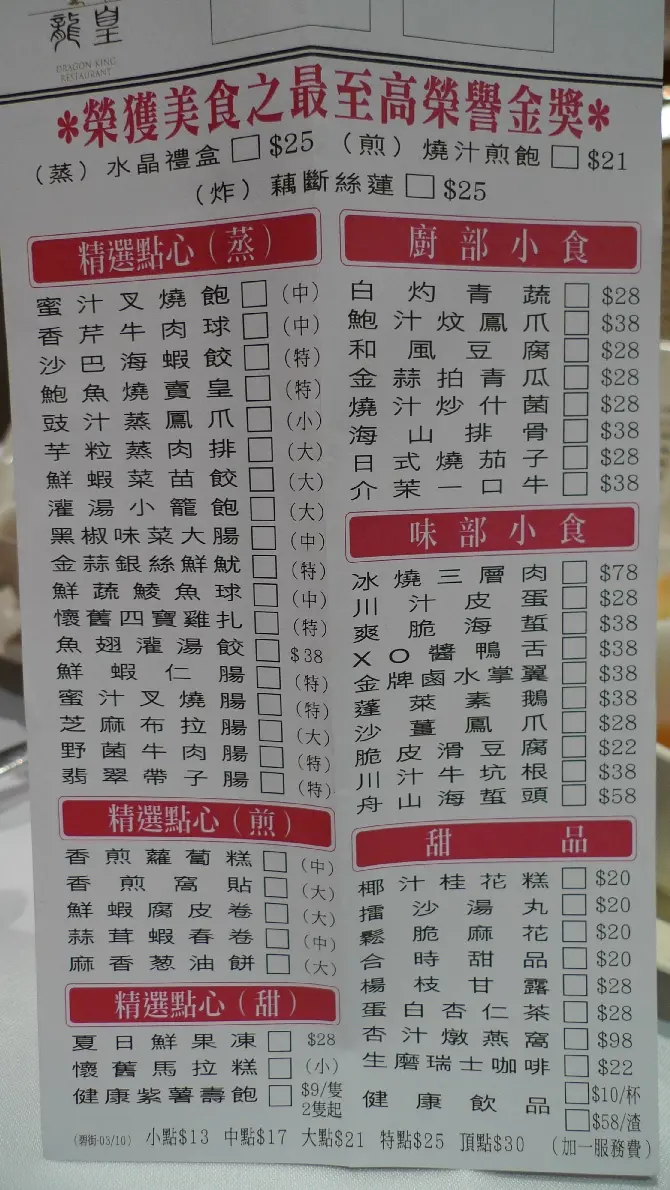 龍皇
DRAGON KING
RESTAURANT
*榮獲美食之最至高榮譽金獎*
（蒸）水晶禮盒□$25 （煎）燒汁煎飽□$21
（炸）藕斷絲蓮□$25
精選點心（蒸）
蜜汁叉燒飽□（中）
香芹牛肉球□（中）
沙巴海蝦餃□（特）
鮑魚燒賣皇□（特）
豉汁蒸鳳爪□（小）
芋粒蒸肉排□（大）
鮮蝦菜苗餃□（大）
灌湯小籠飽□（大）
黑椒味菜大腸□（中）
金蒜銀絲鮮魷□（特）
鮮蔬鯪魚球□（中）
懷舊四寶雞扎□（特）
魚翅灌湯餃□$38
鮮蝦仁腸□（特）
蜜汁叉燒腸□（特）
芝麻布拉腸□（大）
野菌牛肉腸□（特）
翡翠帶子腸□（特）
精選點心（煎）
香煎蘿蔔糕□（中）
香煎窩貼□（大）
鮮蝦腐皮卷□（大）
蒜茸蝦春卷□（中）
麻香葱油餅□（大）
精選點心（甜）
夏日鮮果凍□$28
懷舊馬拉糕□（小）
健康紫薯壽飽□$9/隻
2隻起
廚部小食
白灼青蔬□$28
鮑汁炆鳳爪□$38
和風豆腐□$28
金蒜拍青瓜□$28
燒汁炒什菌□$28
海山排骨□$38
日式燒茄子□$28
介茉一口牛□$38
味部小食
冰燒三層肉□$78
川汁皮蛋□$28
爽脆海蜇□$38
XO醬鴨舌□$38
金牌鹵水掌翼□$38
蓬萊素鵝□$38
沙薑鳳爪□$28
脆皮滑豆腐□$22
川汁牛坑根□$38
舟山海蜇頭□$58
甜品
椰汁桂花糕□$20
擂沙湯丸□$20
鬆脆麻花□$20
合時甜品□$20
楊枝甘露□$28
蛋白杏仁茶□$28
杏汁燉燕窩□$98
生磨瑞士咖啡□$22
健康飲品□$10/杯
□$58/渣
（碧街-03/10） 小點$13 中點$17 大點$21 特點$25 頂點$30 （加一服務費）